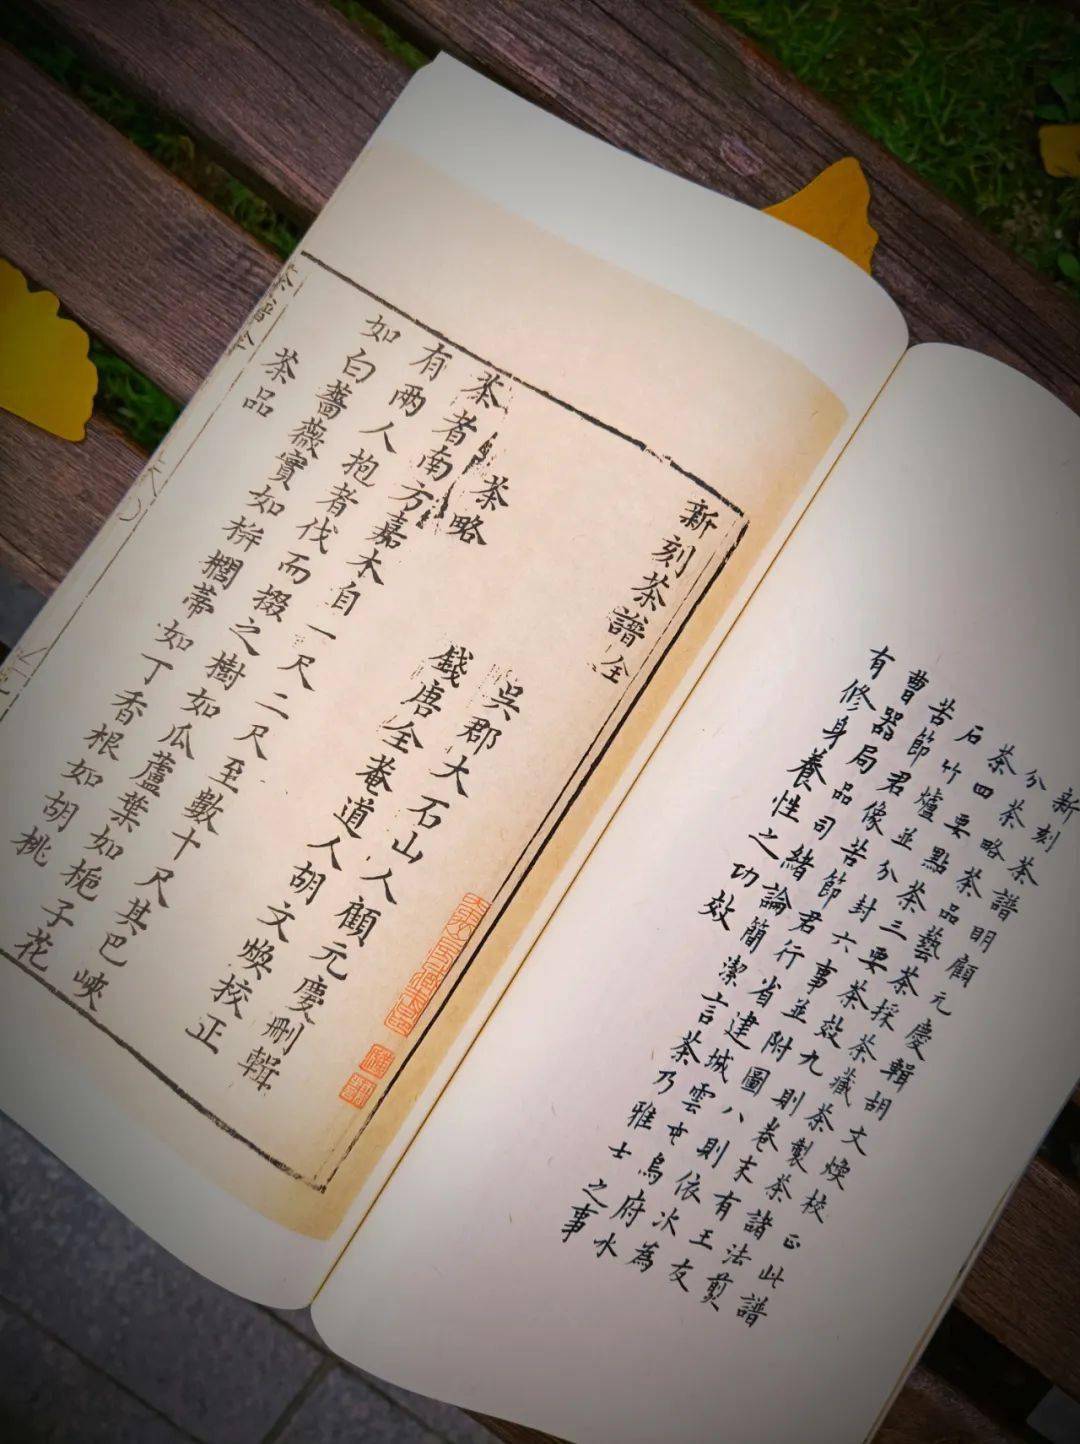 新刻茶譜明顧元慶輯胡文煥校正此譜
分茶略茶品藝茶採茶藏茶製茶諸法煎
茶四要點茶三要茶效九則卷末有王友
石竹爐並分封六事並附圖八則依次為
苦節君像苦節君行省建城雲屯烏府水
曹器局品司緒論簡潔言茶乃雅士之事
有修身養性之功效
新刻茶譜全
吳郡大石山人顧元慶刪輯
錢唐全菴道人胡文煥校正
茶略
茶者南方嘉木自一尺二尺至數十尺其巴峽
有兩人抱者伐而掇之樹如瓜蘆葉如梔子花
如白薔薇實如栟櫚蒂如丁香根如胡桃
茶品
茶譜全